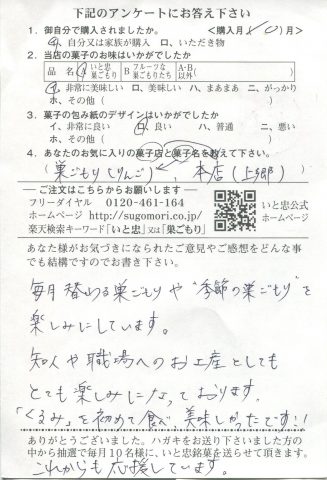 下記のアンケートにお答え下さい
1. 御自分で購入されましたか。 <購入月 10 月>
イ. 自分又は家族が購入 ロ. いただき物
2. 当店の菓子のお味はいかがでしたか
品名 A いと忠巣ごもり B フルーツな巣ごもりたち A・B以外( )
イ. 非常に美味しい ロ. 美味しい ハ. まあまあ ニ. がっかり
ホ. その他( )
3. 菓子の包み紙のデザインはいかがでしたか
イ. 非常に良い ロ. 良い ハ. 普通 ニ. 悪い
ホ. その他( )
4. あなたのお気に入りの菓子店と菓子名を教えて下さい。
(巣ごもり(りんご)、本店(上郷))
ご注文はこちらからお願いします
フリーダイヤル 0120-461-164
ホームページ http://sugomori.co.jp/
楽天検索キーワード「いと忠」又は「巣ごもり」
いと忠公式
ホームページ
あなた様がお気づきになられたご意見やご感想をどんな事
でも結構ですのでお書き下さい。
毎月替わる巣ごもりや"季節の巣ごもり"を
楽しみにしています。
知人や職場へのお土産としても
とても楽しみになっております。
「くるみ」を初めて食べ、美味しかったです!!
ありがとうございました。ハガキをお送り下さいました方の
中から抽選で毎月10名様に、いと忠銘菓を送らせて頂きます。
これからも応援しています。